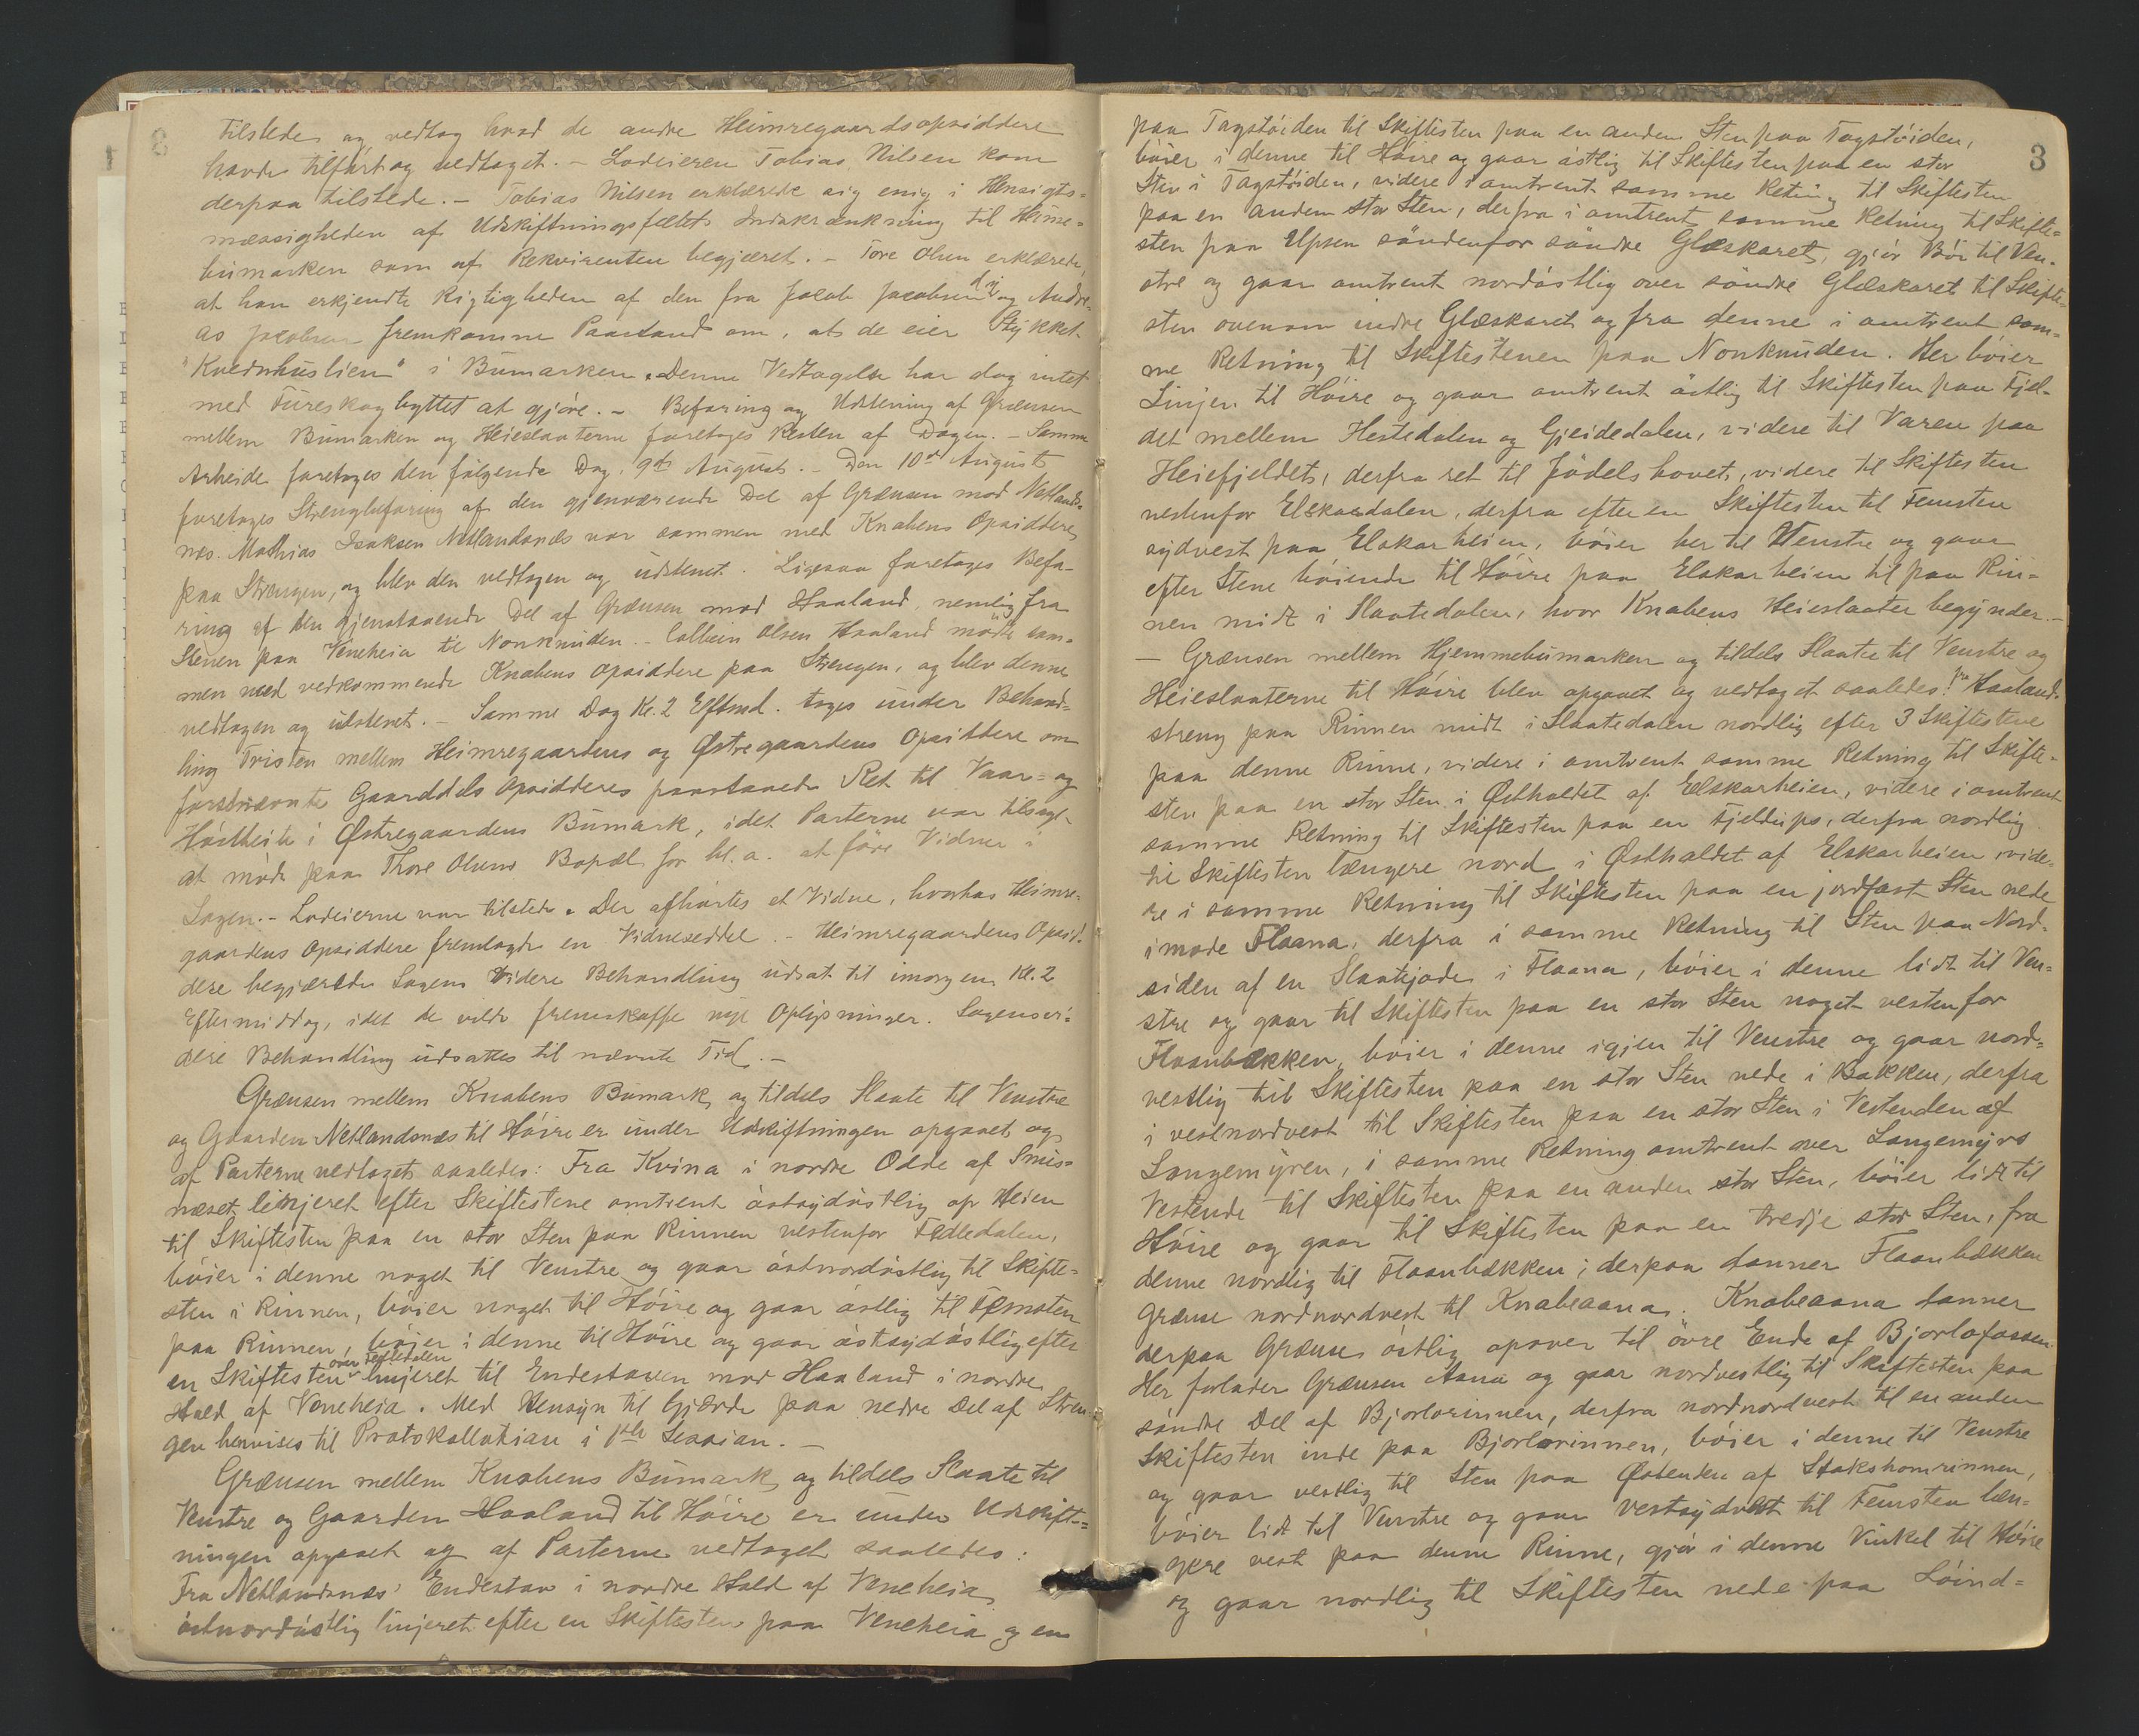 tilstede og vedtog hvad de andre Heimregaardsopsiddere
havde tilført og vedtaget. – Lodeieren Tobias Nilsen kom
derpaa tilstede. – Tobias Nilsen erklærede sig enig i Hensigts-
mæssigheden af Udskiftningsfeltets Indskrænkning til Heime-
bumarken som af Rekvirenten begjæret. – Tore Olsen erklærede,
at han erkjendte Rigtigheden af den fra Jacob Jacobsen og Andre-
as Jacobsen fremkomne Paastand om, at de eier Stykket
"Kvednhuslien" i Bumarken. Denne Vedtagelse har dog intet
med Fureskogbyttet at gjøre. – Befaring og Udstening af Grænsen
mellem Bumarken og Heieslaaterne foretoges Resten af Dagen. – Samme
Arbeide foretoges den følgende Dag, 9de August. – Den 10de August
foretoges Strengbefaring af den gjenværende Del af Grænsen mod Netlands-
næs. Mathias Isaksen Netlandsnæs var sammen med Knabens Opsiddere
paa Strengen, og blev den vedtagen og udstenet. Ligesaa foretoges Befa-
ring af den gjenstaaende Del af Grænsen mod Haaland, nemlig fra
Stenen paa Veneheia til Nonknuden. – Collbein Olsen Haaland mødte sam-
men med vedkommende Knabens Opsiddere paa Strengen, og blev denne
vedtagen og udstenet. – Samme Dag Kl. 2 Eftmd. toges under Behand-
ling Tvisten mellem Heimregaardens og Østregaardens Opsiddere om
førstnævnte Gaarddels Opsidderes paastaaede Ret til Vaar- og
Høstbeite i Østregaardens Bumark, idet Parterne var tilsagt
at møde paa Thore Olsens Bopæl for bl. a. at føre Vidner i
Sagen. – Lodeierne var tilstede. Der afhørtes et Vidne, hvorhos Heimre-
gaardens Opsiddere fremlagde en Vidneseddel. – Heimregaardens Opsid-
dere begjærede Sagens videre Behandling udsat til imorgen Kl. 2
Eftermiddag, idet de vilde fremskaffe nye Oplysninger. Sagens vi-
dere Behandling udsattes til nævnte Tid. –
Grænsen mellem Knabens Bumark og tildels Slaate til Venstre
og Gaarden Netlandsnæs til Høire er under Udskiftningen opgaaet og
af Parterne vedtaget saaledes: Fra Kvina i nordre Odde af Smis-
næset linjeret efter Skiftestene omtrent østsydøstlig op Heien
til Skiftesten paa en stor Sten paa Rinnen vestenfor Fedledalen,
bøier i denne noget til Venstre og gaar østnordøstlig til Skifte-
sten i Rinnen, bøier noget til Høire og gaar østlig til Femsten
paa Rinnen, bøier i denne til Høire og gaar østsydøstlig efter
en Skiftesten over Fedledalen linjeret til Endestaven mod Haaland i nordre
Hald af Veneheia. Med Hensyn til Gjærde paa nedre Del af Stren-
gen henvises til Protokollation i 1ste Session. –
Grænsen mellem Knabens Bumark og tildels Slaate til
Venstre og Gaarden Haaland til Høire er under Udskift-
ningen opgaaet og af Parterne vedtaget saaledes:
Fra Netlandsnæs' Endestav i nordre Hald af Veneheia
østnordøstlig linjeret efter en Skiftesten paa Veneheia og en
3
paa Tagstøiden til Skiftesten paa en anden Sten paa Tagstøiden,
bøier i denne til Høire og gaar østlig til Skiftesten paa en stor
Sten i Tagstøiden, videre i omtrent samme Retning til Skiftesten
paa en anden stor Sten, derfra i omtrent samme Retning til Skifte-
sten paa Upsen søndenfor søndre Glæskaret, gjør Bøi til Ven-
stre og gaar omtrent nordøstlig over søndre Glæskaret til Skifte-
sten ovenom indre Glæskaret og fra denne i omtrent sam-
me Retning til Skiftestenen paa Nonknuden. Her bøier
Linjen til Høire og gaar omtrent østlig til Skiftesten paa Fjel-
det mellem Hestedalen og Gjeidedalen, videre til Varen paa
Heiefjeldet, derfra ret til Jødelshovet, videre til Skiftesten
vestenfor Elskardalen, derfra efter en Skiftesten til Femsten
sydvest paa Elskarheien, bøier her til Venstre og gaar
efter Stene bøiende til Høire paa Elskarheien til paa Rin-
nen midt i Slaatedalen, hvor Knabens Heieslaatter begynder. –
– Grænsen mellem Hjemmebumarken og tildels Slaatte til Venstre og
Heieslaaterne til Høire blev opgaaet og vedtaget saaledes: fra Haaland-
streng paa Rinnen midt i Slaatedalen nordlig efter 3 Skiftestene
paa denne Rinne, videre i omtrent samme Retning til Skifte-
sten paa en stor Sten i Østhaldet af Elskarheien, videre i omtrent
samme Retning til Skiftesten paa en Fjeldups, derfra nordlig
til Skiftesten længere nord i Østhaldet af Elskarheien, vide-
re i samme Retning til Skiftesten paa en jordfast Sten nede
imode Flaana, derfra i samme Retning til Sten paa Nord-
siden af en Slaatejode i Flaana, bøier i denne lidt til Ven-
stre og gaar til Skiftesten paa en stor Sten noget vestenfor
Flaanbækken, bøier i denne igjen til Venstre og gaar nord-
vestlig til Skiftesten paa en stor Sten nede i Bakken, derfra
i vestnordvest til Skiftesten paa en stor Sten i Vestenden af
Langemyren, i samme Retning omtrent over Langemyrs
Vestende til Skiftesten paa en anden stor Sten, bøier lidt til
Høire og gaar til Skiftesten paa en tredje stor Sten, fra
denne nordlig til Flaanbækken; derpaa danner Flaanbækken
Grænse nordnordvest til Knabeaana. Knabeaana danner
derpaa Grænse østlig opover til øvre Ende af Bjorlofossen.
Her forlader Grænsen Aana og gaar nordvestlig til Skiftesten paa
søndre Del af Bjorlorinnen, derfra nordnordvest til en anden
Skiftesten inde paa Bjorlorinnen, bøier i denne til Venstre
og gaar vestlig til Sten paa Østenden af Stakshomrinnen,
bøier lidt til Venstre og gaar vestsydvest til Femsten læn-
gere vest paa denne Rinne, gjør i denne Vinkel til Høire
og gaar nordlig til Skiftesten nede paa Løind-